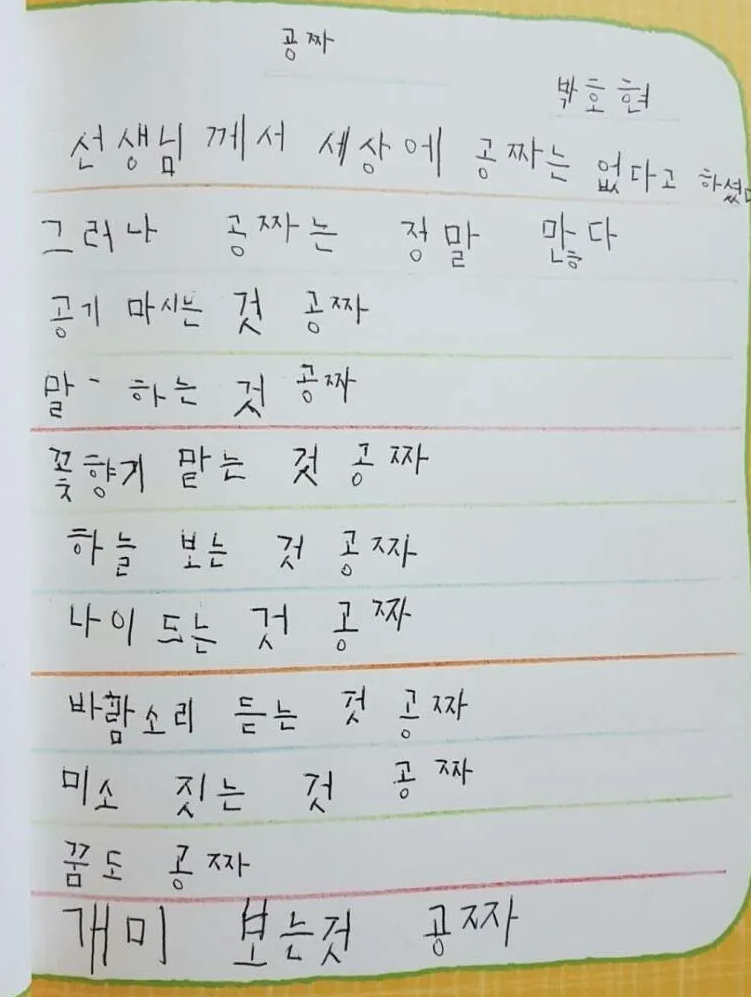 공짜
박호현
선생님께서 세상에 공짜는 없다고 하셨다
그러나 공짜는 정말 많다
공기 마시는 것 공짜
말 하는 것 공짜
꽃향기 맡는 것 공짜
하늘 보는 것 공짜
나이 드는 것 공짜
바람소리 듣는 것 공짜
미소 짓는 것 공짜
꿈도 공짜
개미 보는것 공짜